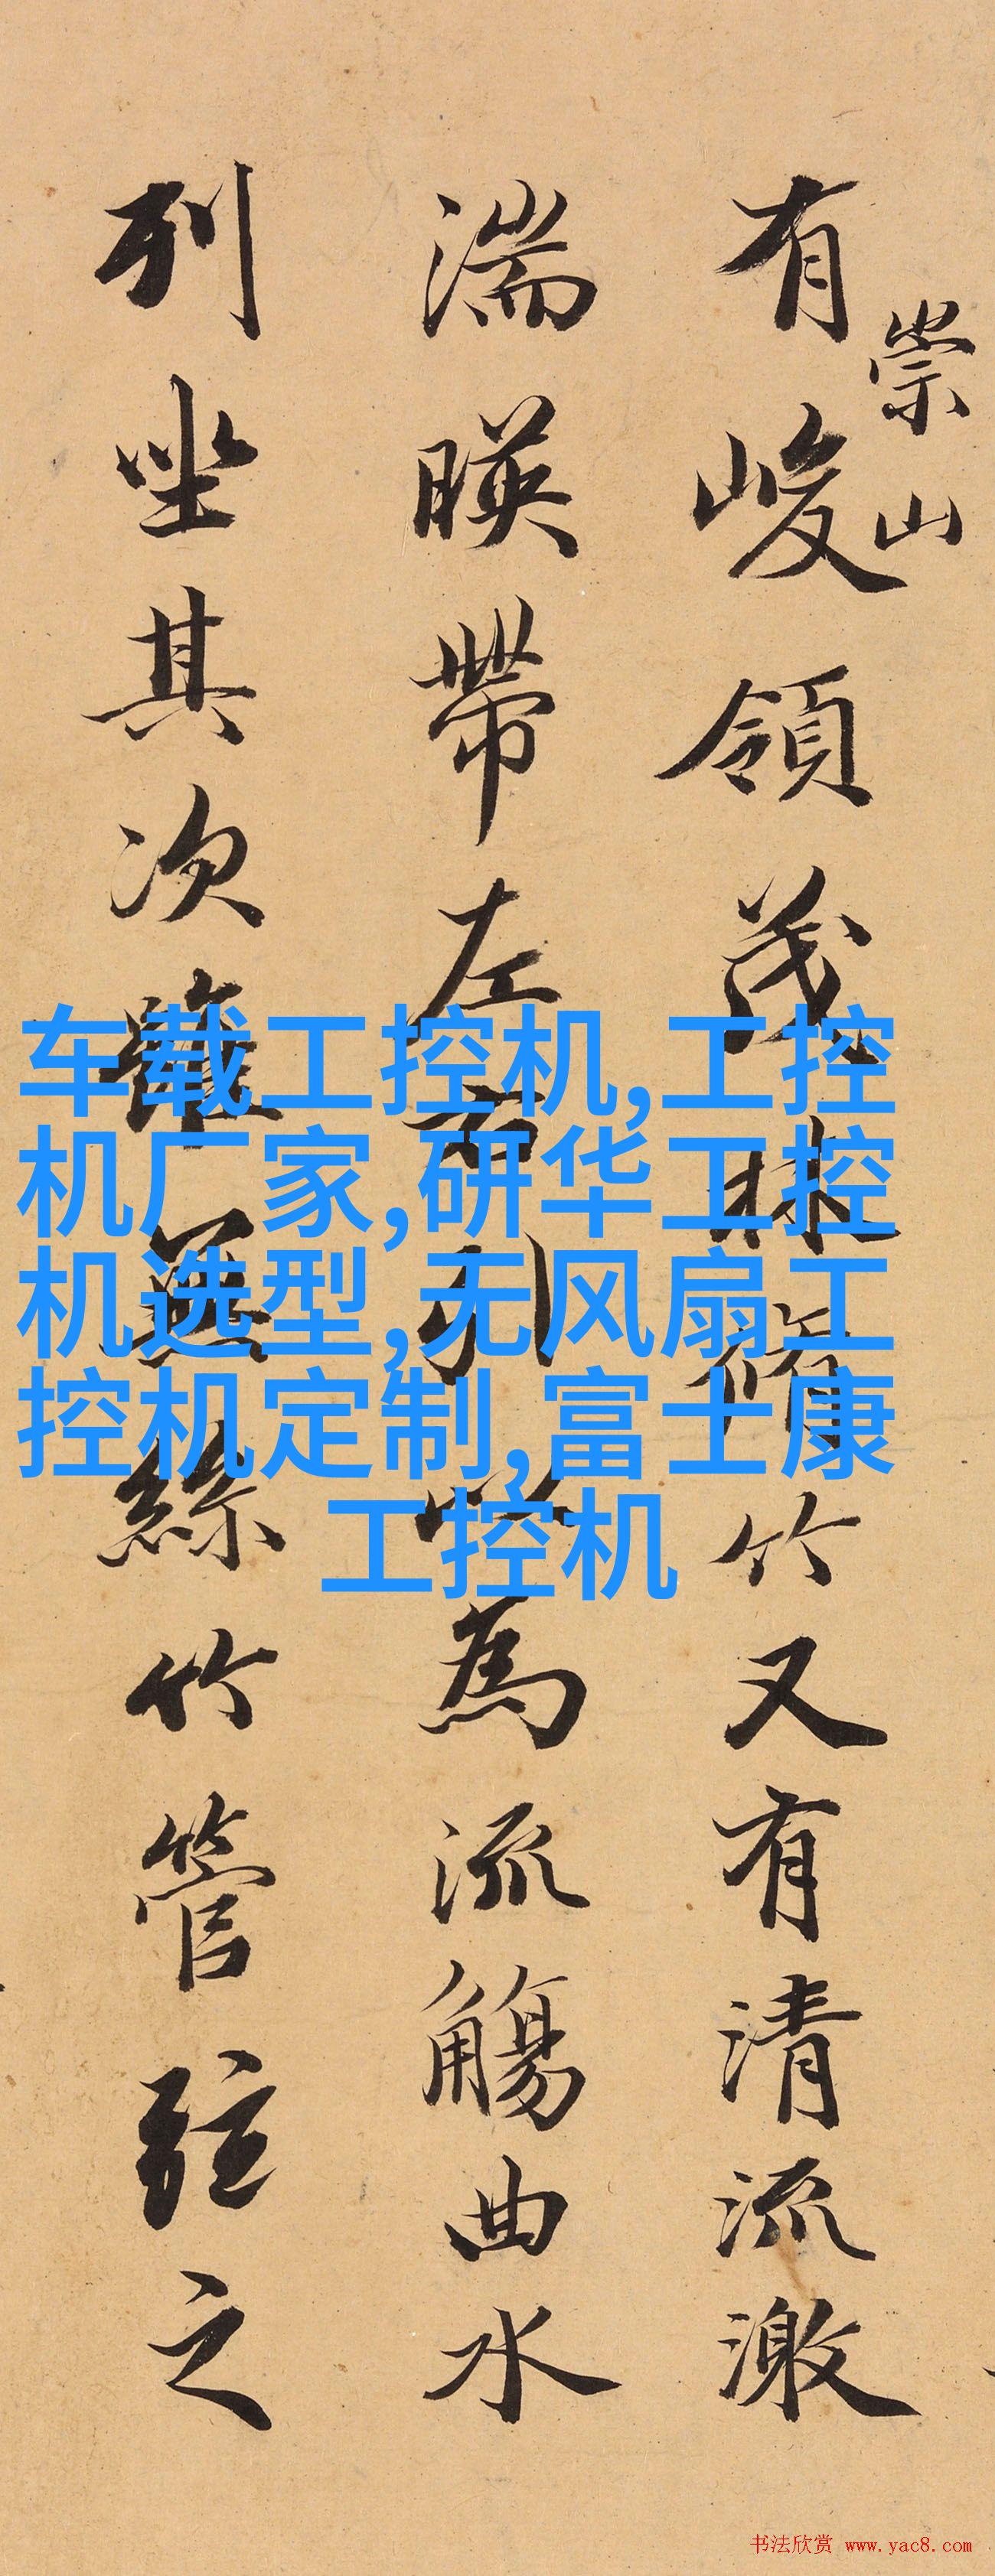 崇山
有峻領茂林脩竹又有清流激
湍暎帶左右引以為流觴曲水
列坐其次雖無絲竹管弦之
车载工控机,工控
机厂家,研华工控
机选型,无风扇工
控机定制,富士康
工控机
书法欣赏 www.yac8.com